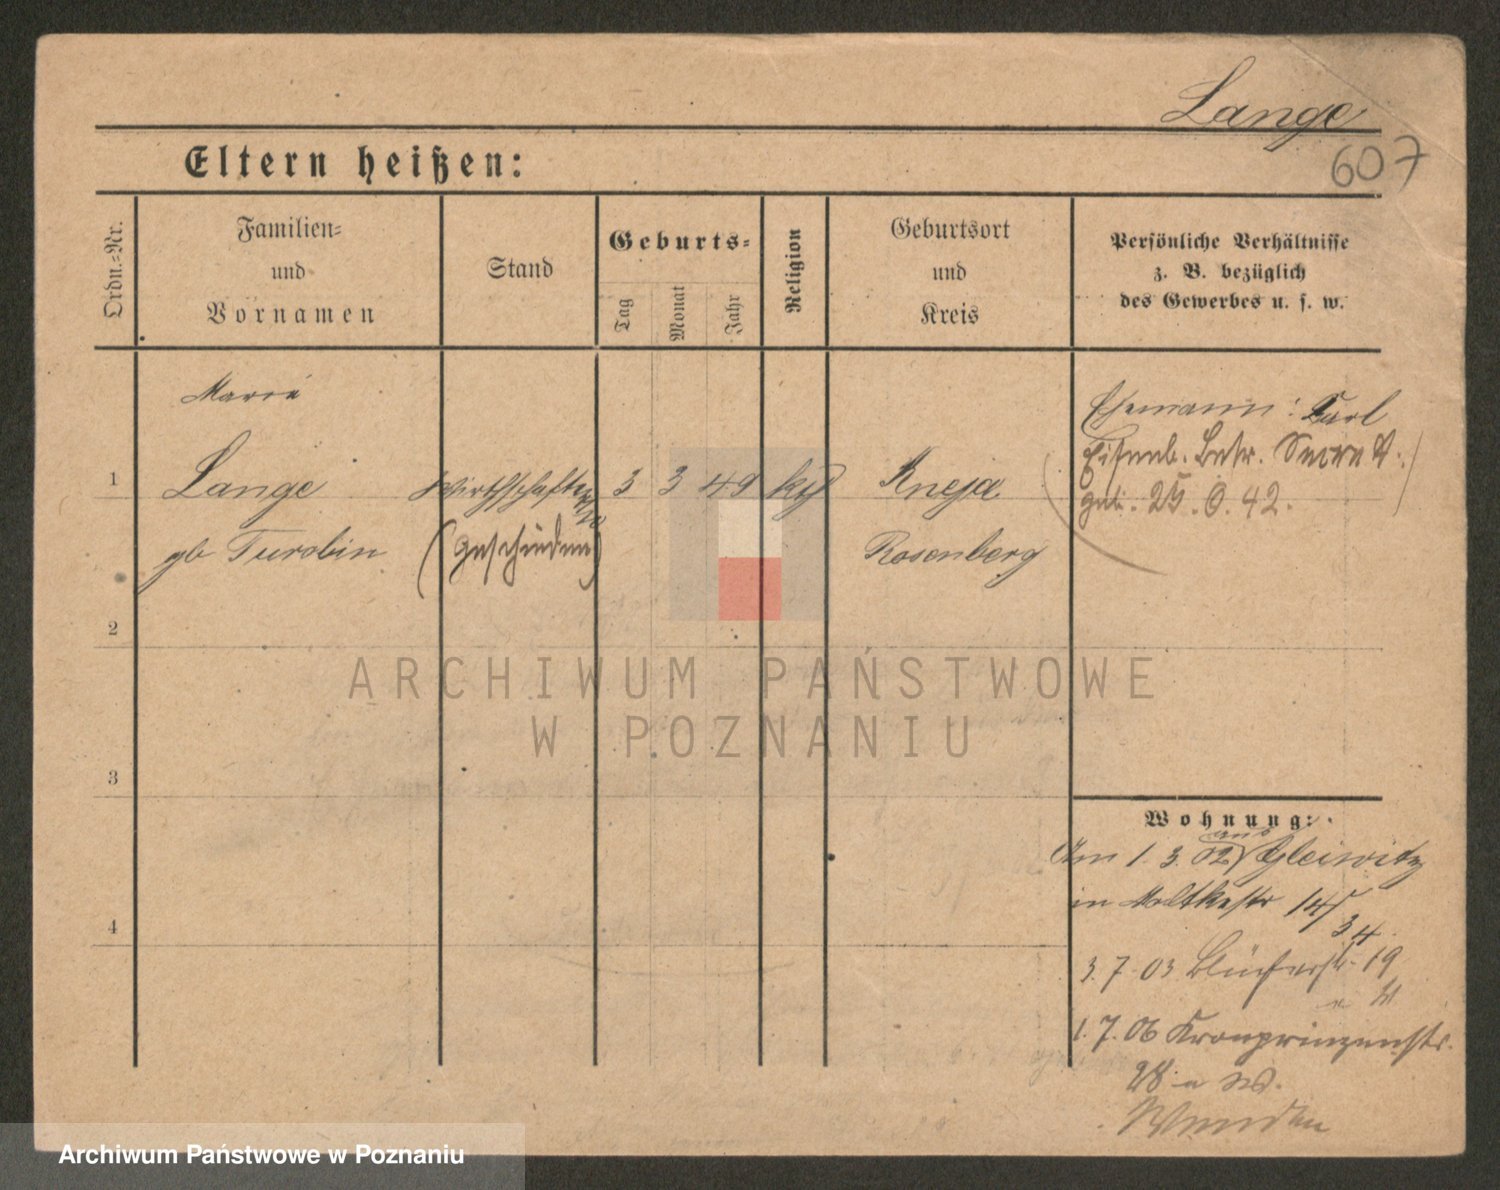 Lange
607
Eltern heißen:
Ordn.-Nr.
Familien-
und
Vornamen
Stand
Geburts-
Tag
Monat
Jahr
Religion
Geburtsort
und
Kreis
Persönliche Verhältnisse
z. B. bezüglich
des Gewerbes u. s. w.
1
Marie
Lange
gb Turobin
Wirthschafterin
(geschieden)
3 3 49
Kneja
Rosenberg
Ehemann: Carl
Eisenb. Betr. Secret.
geb. 25. 6. 42.
2
ARCHIWUM PAŃSTWOWE
W POZNANIU
3
4
Wohnung:
aus
Am 1. 3. 02 Gleiwitz
in Moltkestr
34
3. 7. 03 Blücherstr. 19
1. 7. 06 Kronprinzenstr.
Archiwum Państwowe w Poznaniu